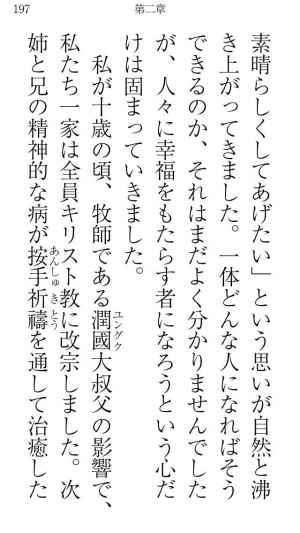 197
第二章
素晴らしくしてあげたい」という思いが自然と沸
き上がってきました。一体どんな人になればそう
できるのか、それはまだよく分かりませんでした
が、人々に幸福をもたらす者になろうという心だ
けは固まっていきました。
私が十歳の頃、牧師である潤國大叔父の影響で、
ユングク
私たち一家は全員キリスト教に改宗しました。次
姉と兄の精神的な病が按手祈禱を通して治癒した
あんしゅきとう